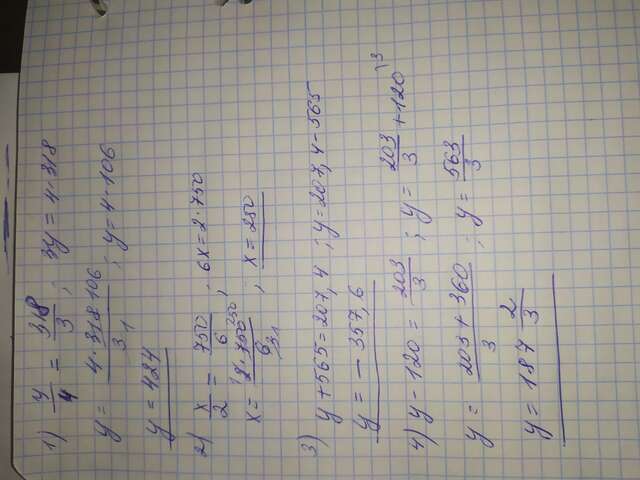 1) y/4 = 318/3 ; 3y = 4·318
y = 4·318 106/3 1 ; y = 4·106
y = 424
2) x/2 = 750/6 ; 6x = 2·750
x = 2·750 250/6 3 1 ; x = 250
3) y + 565 = 207,4 ; y = 207,4 - 565
y = - 357,6
4) y - 120 = 203/3 ; y = 203/3 + 120 \3
y = 203 + 360/3 ; y = 563/3
y = 187 2/3